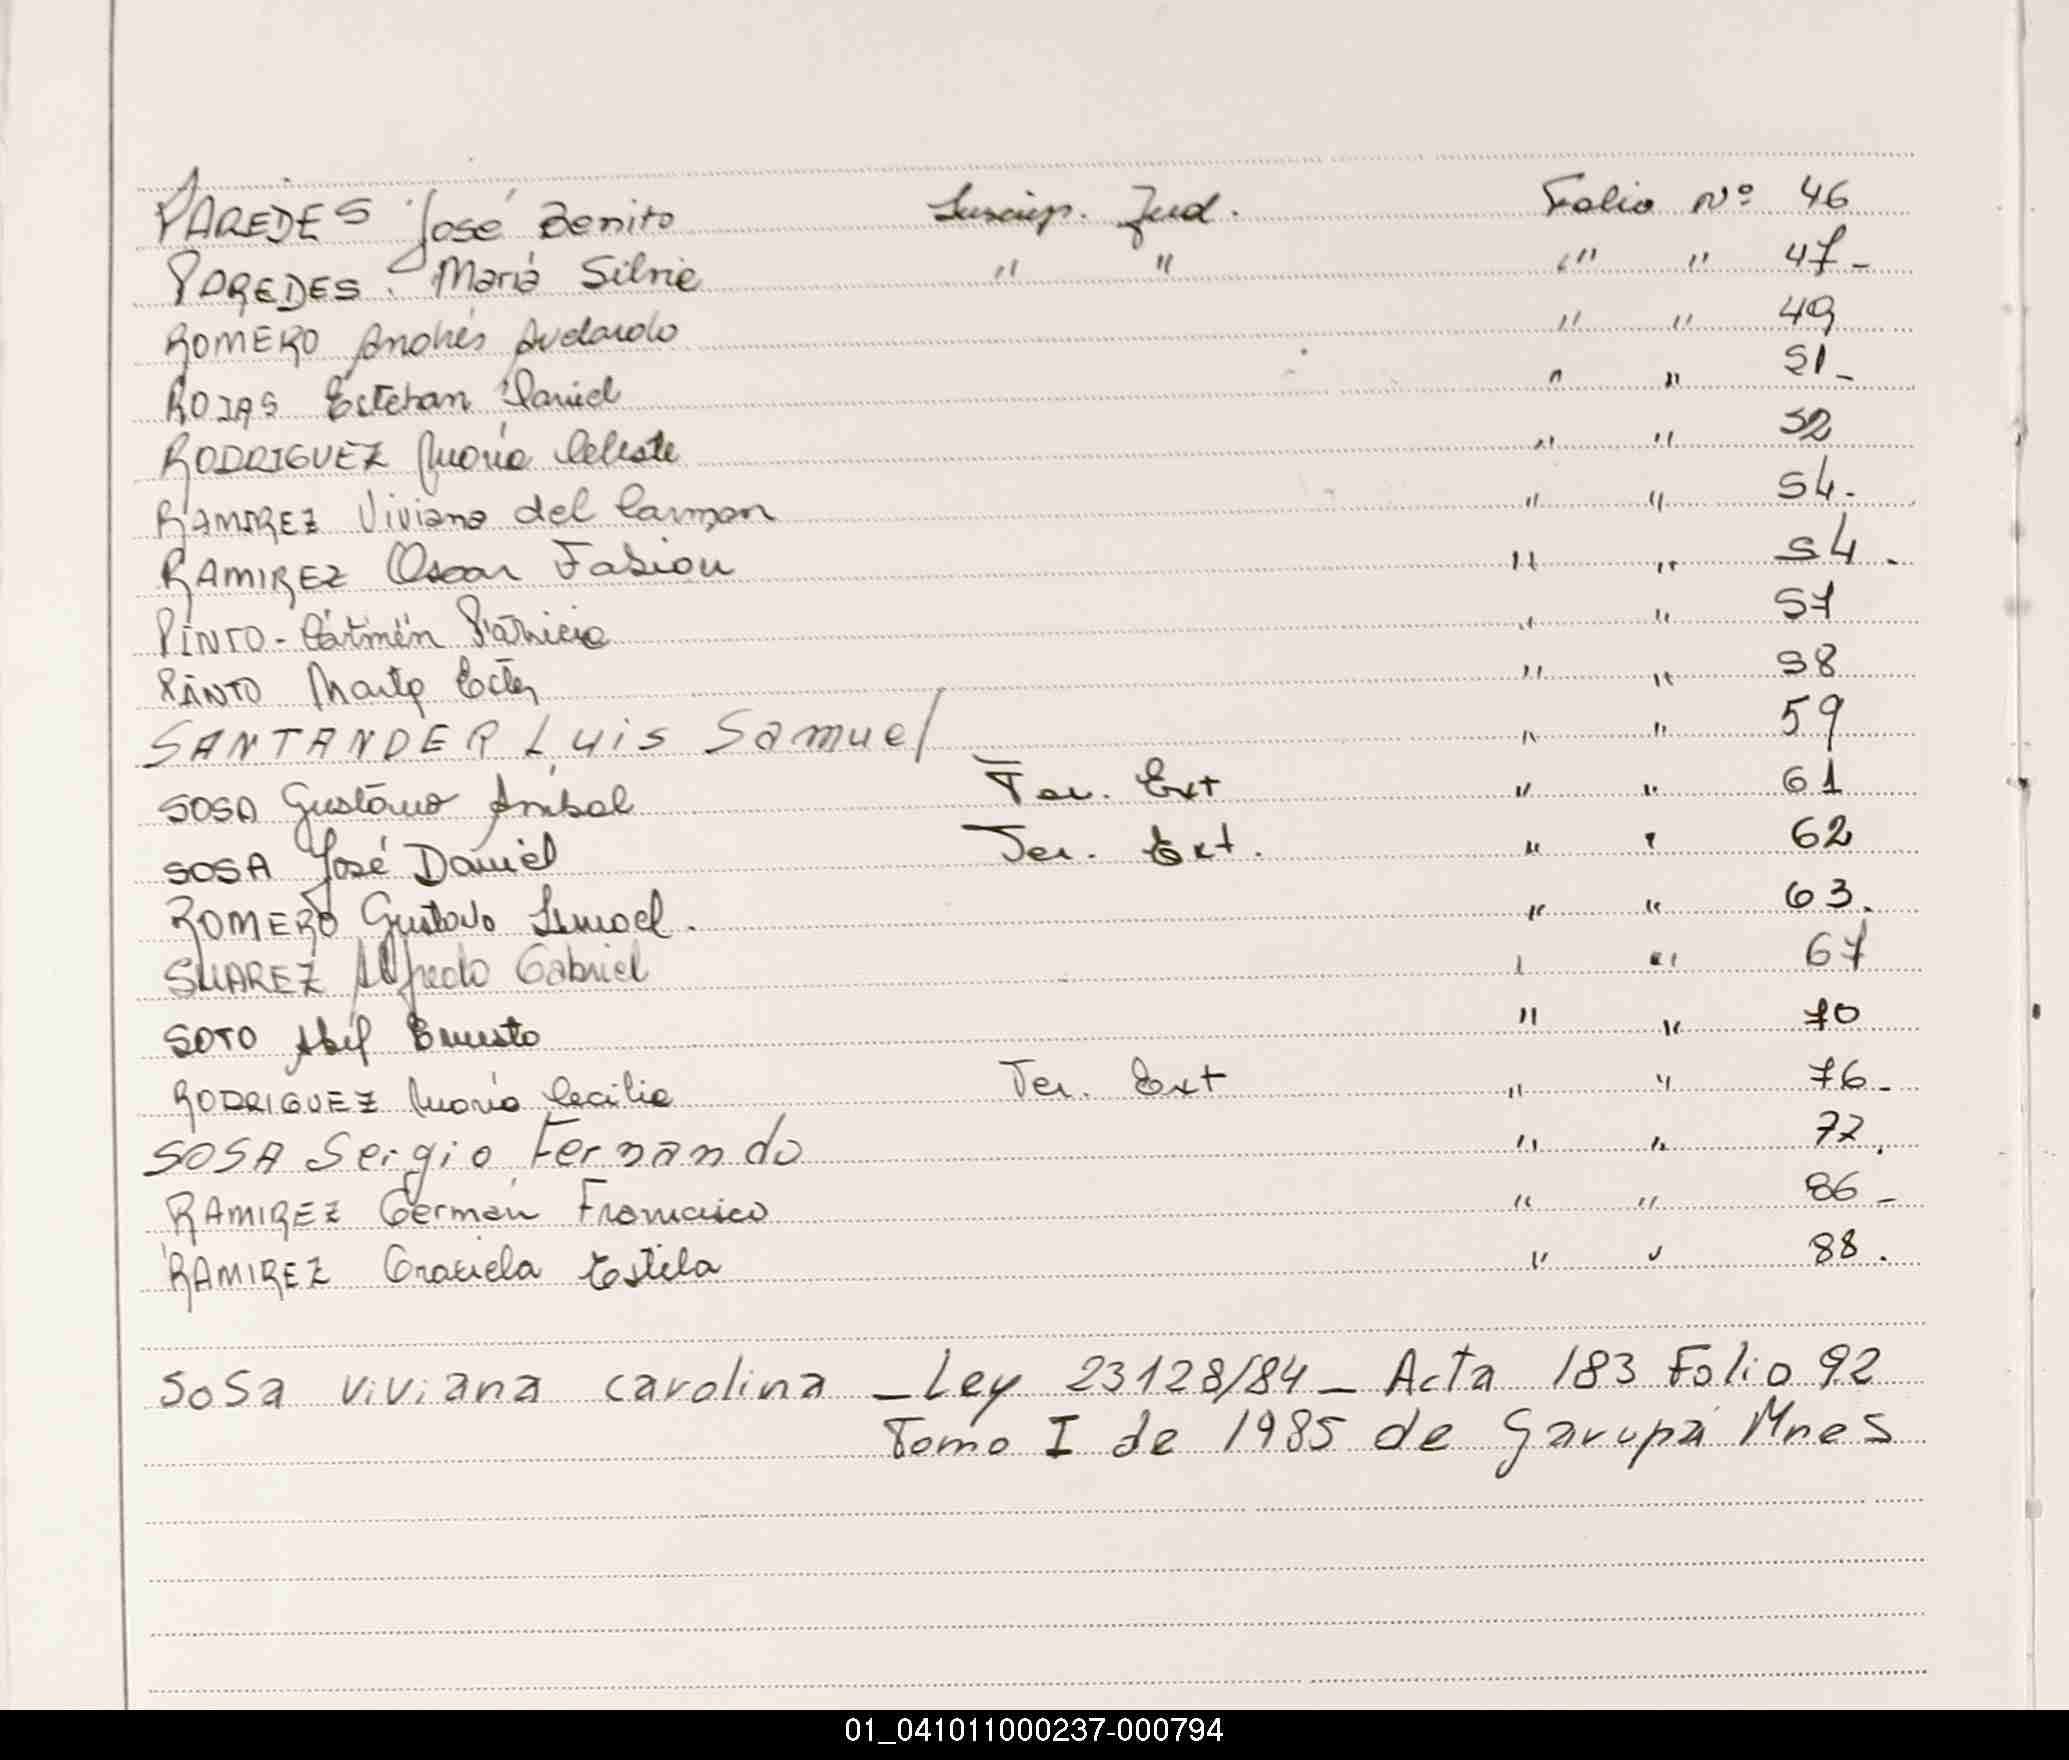 PAREDES José Benito Inscrip. Jud. Folio Nº 46
PAREDES. María Silvie " " " " 47-
ROMERO Andrés Avelardo " " 49
ROJAS Esteban Daniel " " 51-
RODRIGUEZ María Celeste " " 52
RAMIREZ Viviana del Carmen " " 54.
RAMIREZ Oscar Fabian " " 54.
PINTO - Cármén Patricia " " 57
PINTO Marta Ester " " 58
SANTANDER Luis Samuel " " 59
SOSA Gustavo Anibal Ter. Ext " " 61
SOSA José Daniel Ter. Ext. " " 62
ROMERO Gustavo Ismael. " " 63.
SUAREZ Alfredo Gabriel " " 67
SOTO Abel Ernesto " " 70
RODRIGUEZ María Cecilia Ter. Ext " " 76-
SOSA Sergio Fernando " " 77.
RAMIREZ Germán Francisco " " 86-
RAMIREZ Graciela Estela " " 88.
SOSA viviana carolina - Ley 23128/84 - Acta 183 Folio 92
Tomo I de 1985 de Garupá Mnes
01_041011000237-000794